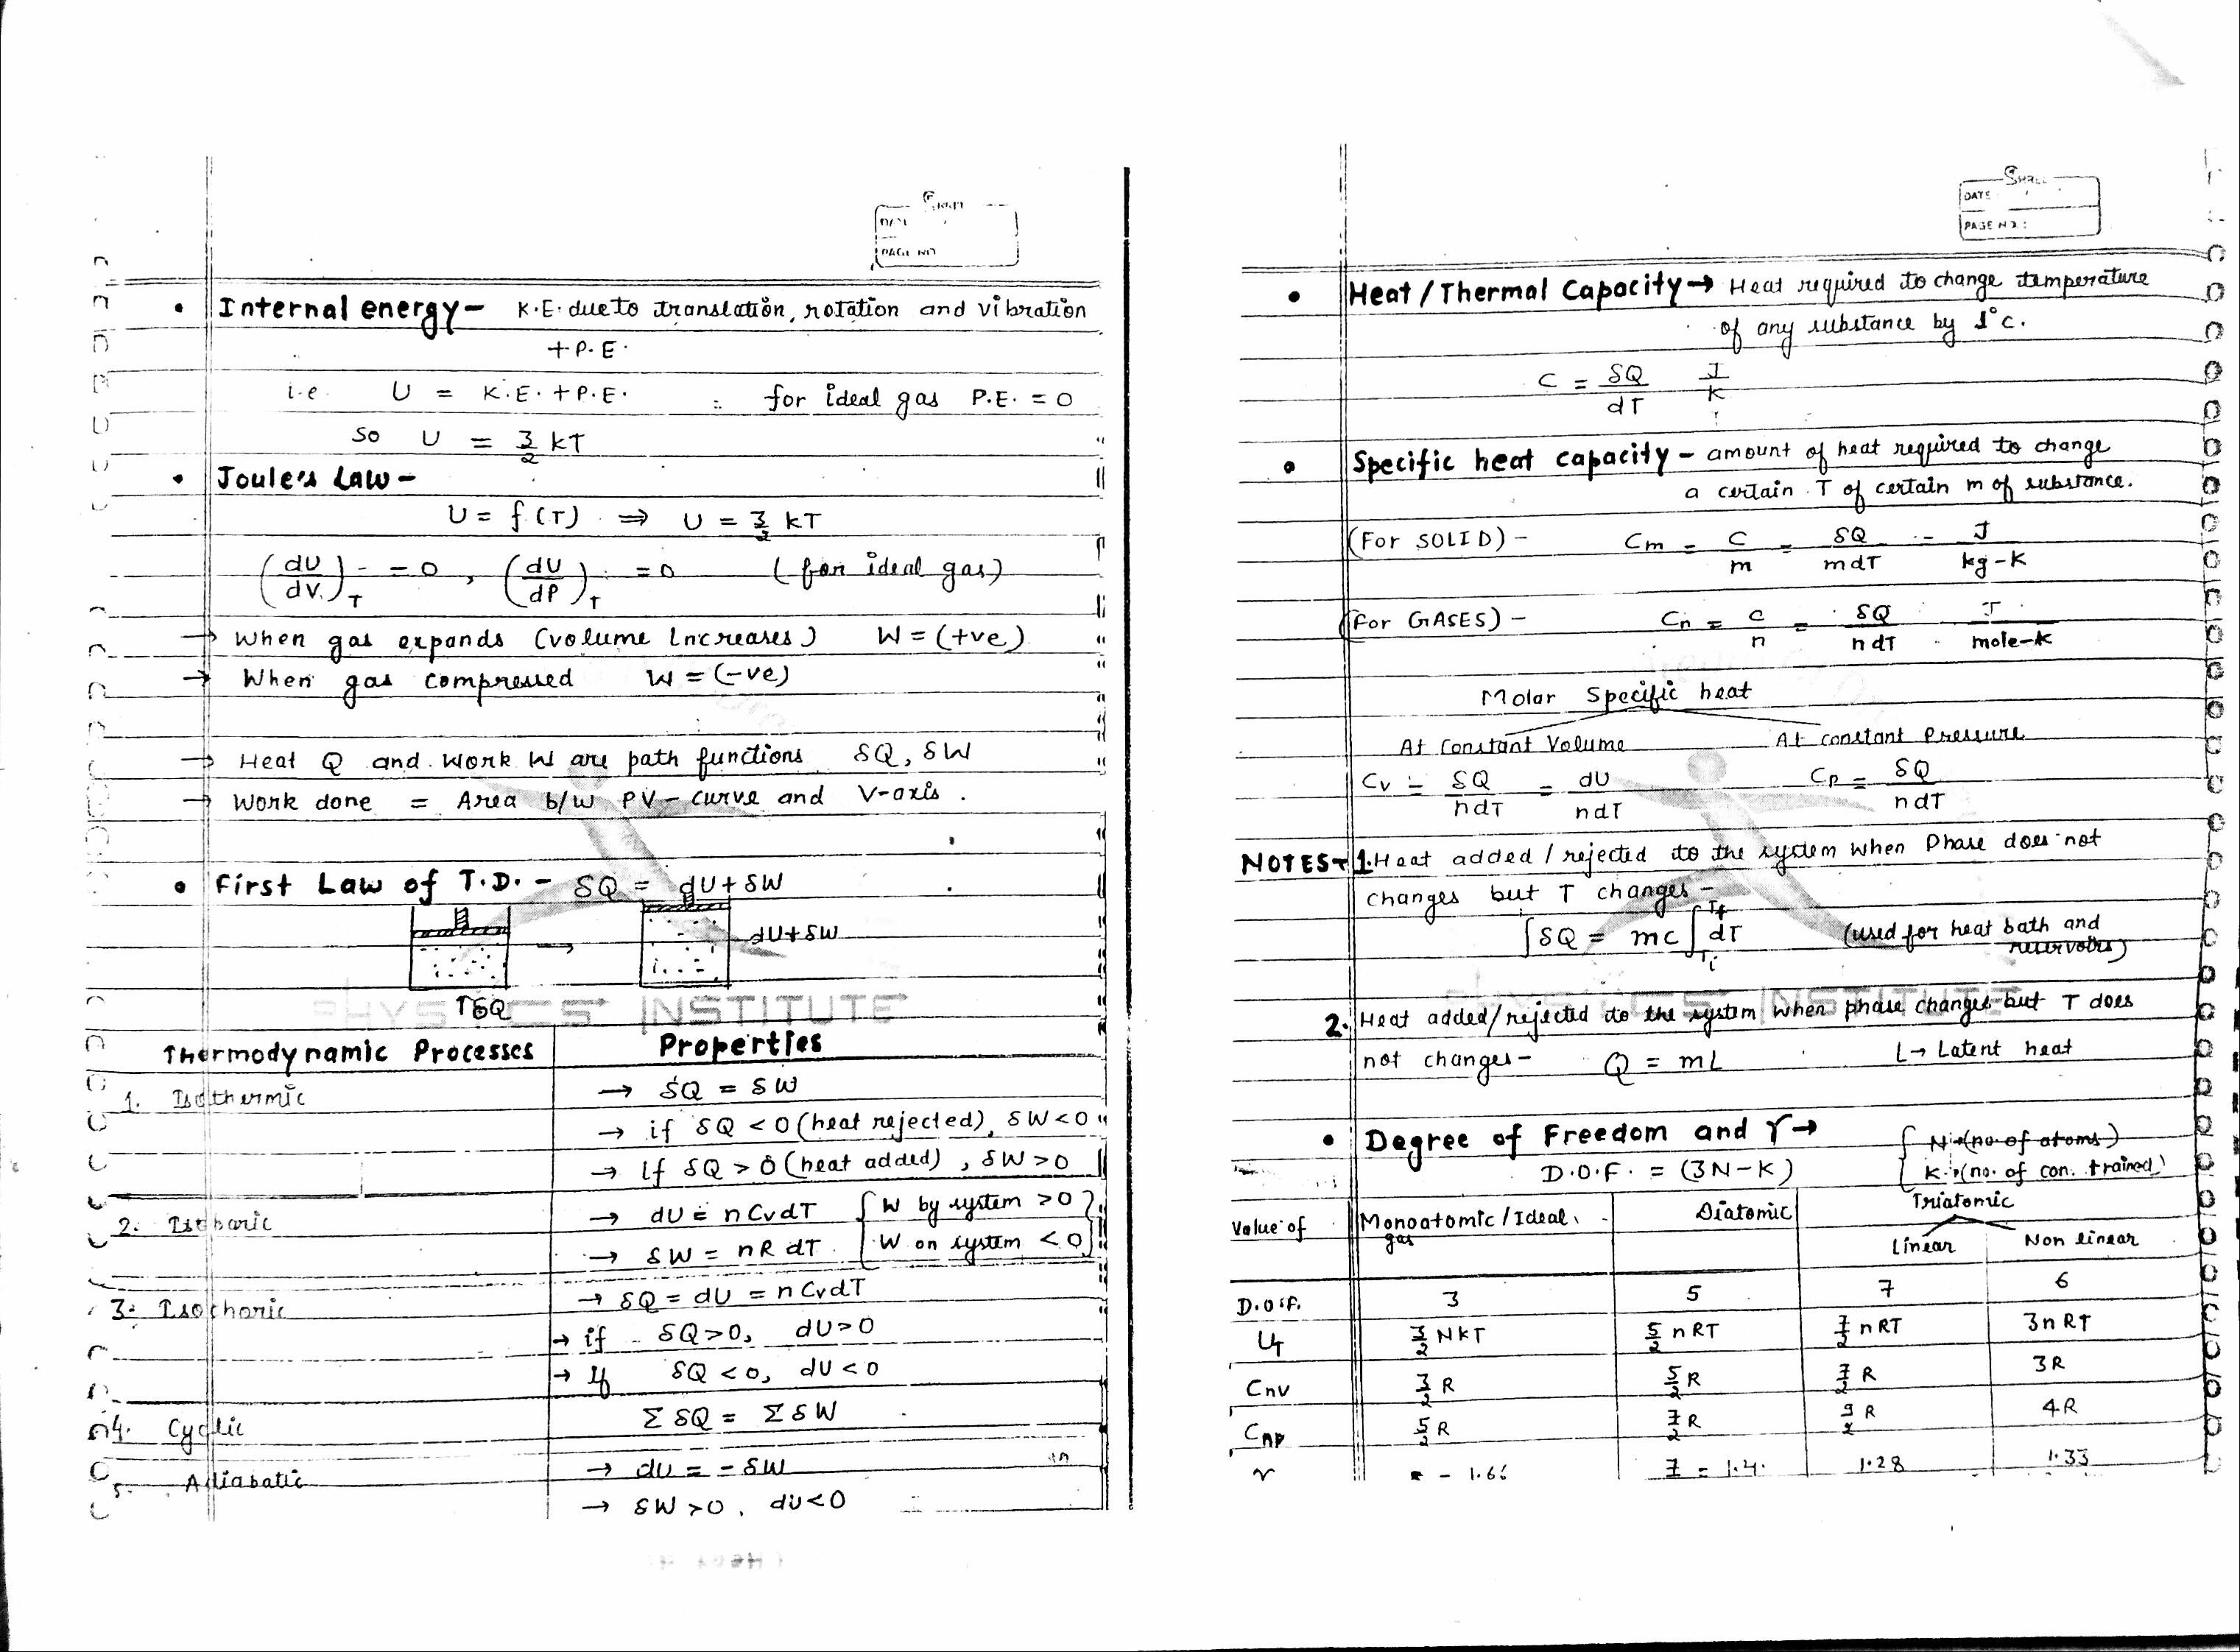 DATE
PAGE NO
• Internal energy - K.E. due to translation, rotation and vibration
+ P.E.
i.e. U = K.E. + P.E. : for ideal gas P.E. = 0
So U = 3/2 kT
• Joule's Law -
U = f(T) ⇒ U = 3/2 kT
(dU/dV)_T = 0, (dU/dP)_T = 0 (for ideal gas)
→ When gas expands (volume increases) W = (+ve)
→ When gas compressed W = (-ve)
→ Heat Q and Work W are path functions δQ, δW
→ Work done = Area b/w PV - curve and V-axis.
• First Law of T.D. - δQ = dU + δW
→ dU + δW
↑δQ
PHYSICS INSTITUTE
Thermodynamic Processes | Properties
1. Isothermic → δQ = δW
→ if δQ < 0 (heat rejected), δW < 0
→ If δQ > 0 (heat added), δW > 0
2. Isobaric → dU = nCvdT { W by system > 0 }
→ δW = nRdT { W on system < 0 }
3. Isochoric → δQ = dU = nCvdT
→ if δQ > 0, dU > 0
→ If δQ < 0, dU < 0
4. Cyclic Σ δQ = Σ δW
5. Adiabatic → dU = - δW
→ δW > 0, dU < 0
DATE
PAGE NO.:
• Heat / Thermal Capacity → Heat required to change temperature
of any substance by 1°c.
C = δQ/dT J/K
• Specific heat capacity - amount of heat required to change
a certain T of certain m of substance.
(For SOLID) - Cm = C/m = δQ/mdT - J/kg-K
(For GASES) - Cn = C/n = δQ/ndT J/mole-K
Molar Specific heat
At Constant Volume At constant Pressure
Cv = δQ/ndT = dU/ndT Cp = δQ/ndT
NOTES → 1. Heat added / rejected to the system when Phase does not
changes but T changes -
∫δQ = mc ∫_Ti^Tf dT (used for heat bath and
reservoirs)
PHYSICS INSTITUTE
2. Heat added/rejected to the system when phase changes but T does
not changes - Q = mL L → Latent heat
• Degree of Freedom and γ → { N → (no. of atoms)
D.O.F. = (3N - K) K → (no. of con. trained)
Value of | Monoatomic / Ideal gas | Diatomic | Triatomic
Linear | Non linear
D.O.F. | 3 | 5 | 7 | 6
U | 3/2 NkT | 5/2 nRT | 7/2 nRT | 3nRT
Cnv | 3/2 R | 5/2 R | 7/2 R | 3R
Cnp | 5/2 R | 7/2 R | 9/2 R | 4R
γ | - 1.66 | 7 = 1.4 | 1.28 | 1.33